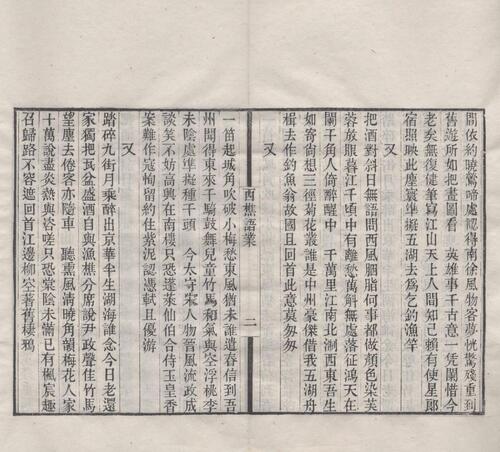 閒依約曉鶯啼處認得南徐風物客夢恍驚殘重到
舊遊所如把畫圖看　英雄事千古意一凭闌惜今
老矣無復健筆寫江山天上人間知己賴有使星郎
宿照映此塵寰準擬五湖去爲乞釣漁竿
又
把酒對斜日無語問西風胭脂何事都做顏色染芙
蓉放眼暮江千頃中有離愁萬斛無處落征鴻天在
闌干角人倚醉醒中　千萬里江南北淛西東吾生
如寄尙想三徑菊花叢誰是中州豪傑借我五湖舟
楫去作釣魚翁故國且回首此意莫匆匆
又
西樵語業
二
一笛起城角吹破小梅愁東風猶未誰遣春信到吾
州聞得東來千騎鼓舞兒童竹馬和氣與空浮桃李
未陰處準擬種千頭　今太守宋人物晉風流政成
談笑不妨高興在南樓只恐蓬萊仙伯合侍玉皇香
案難作寇恂留約住紫泥認憑軾且優游
又
踏碎九街月乘醉出京華半生湖海誰念今日老還
家獨把瓦盆盛酒自與漁樵分席說尹政聲佳竹馬
望塵去倦客亦隨車　聽薰風淸曉角韻梅花人家
十萬說盡炎熱與咨嗟只恐棠陰未滿已有楓宸趣
召歸路不容遮回首江邊柳空著舊棲鴉